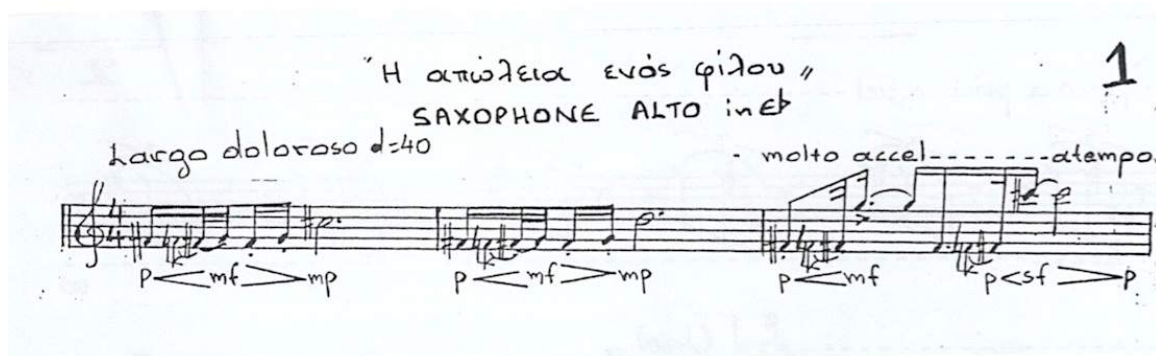 "Η απώλεια ενός φίλου"
1
SAXOPHONE ALTO in Eb
Largo doloroso d=40
molto accel--------atempo.
4
4
p mf mp p mf mp p mf p sf p